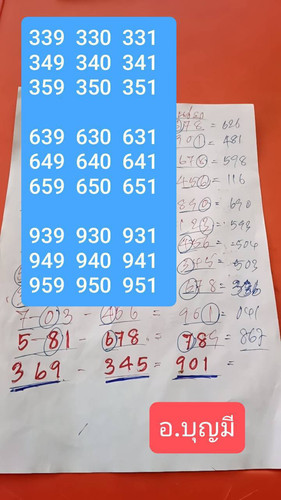 339 330 331
349 340 341
359 350 351
639 630 631
649 640 641
659 650 651
939 930 931
949 940 941
959 950 951
78 = 686
901 = 481
676 = 598
456 = 116
890 = 690
= 504
= 503
678 =
7-03 - 466 = 901 = 041
5-81 - 678 = 789 = 867
369 - 345 = 901 =
อ.บุญมี